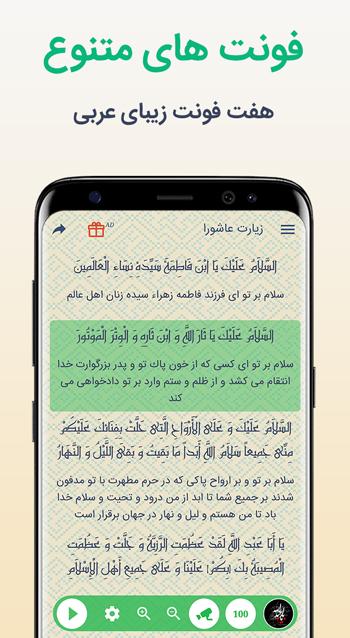 فونت های متنوع
هفت فونت زیبای عربی
زیارت عاشورا
AD
السَّلَامُ عَلَيْكَ يَا ابْنَ فَاطِمَةَ سَيِّدَةِ نِسَاءِ الْعَالَمِينَ
سلام بر تو ای فرزند فاطمه زهراء سیده زنان اهل عالم
السَّلَامُ عَلَيْكَ يَا ثَارَ اللَّهِ وَ ابْنَ ثَارِهِ وَ الْوِتْرَ الْمَوْتُورَ
سلام بر تو ای کسی که از خون پاك تو و پدر بزرگوارت خدا
انتقام می کشد و از ظلم و ستم وارد بر تو دادخواهی می
کند
السَّلَامُ عَلَيْكَ وَ عَلَى الْأَرْوَاحِ الَّتِي حَلَّتْ بِفِنَائِكَ عَلَيْكُمْ
مِنِّي جَمِيعاً سَلَامُ اللَّهِ أَبَداً مَا بَقِيتُ وَ بَقِيَ اللَّيْلُ وَ النَّهَارُ
سلام بر تو و بر ارواح پاکی که در حرم مطهرت با تو مدفون
شدند بر جمیع شما تا ابد از من درود و تحیت و سلام خدا
باد تا من هستم و لیل و نهار در جهان برقرار است
يَا أَبَا عَبْدِ اللَّهِ لَقَدْ عَظُمَتِ الرَّزِيَّةُ وَ جَلَّتْ وَ عَظُمَتِ
الْمُصِيبَةُ بِكَ (بِكُمْ) عَلَيْنَا وَ عَلَى جَمِيعِ أَهْلِ الْإِسْلَامِ
100